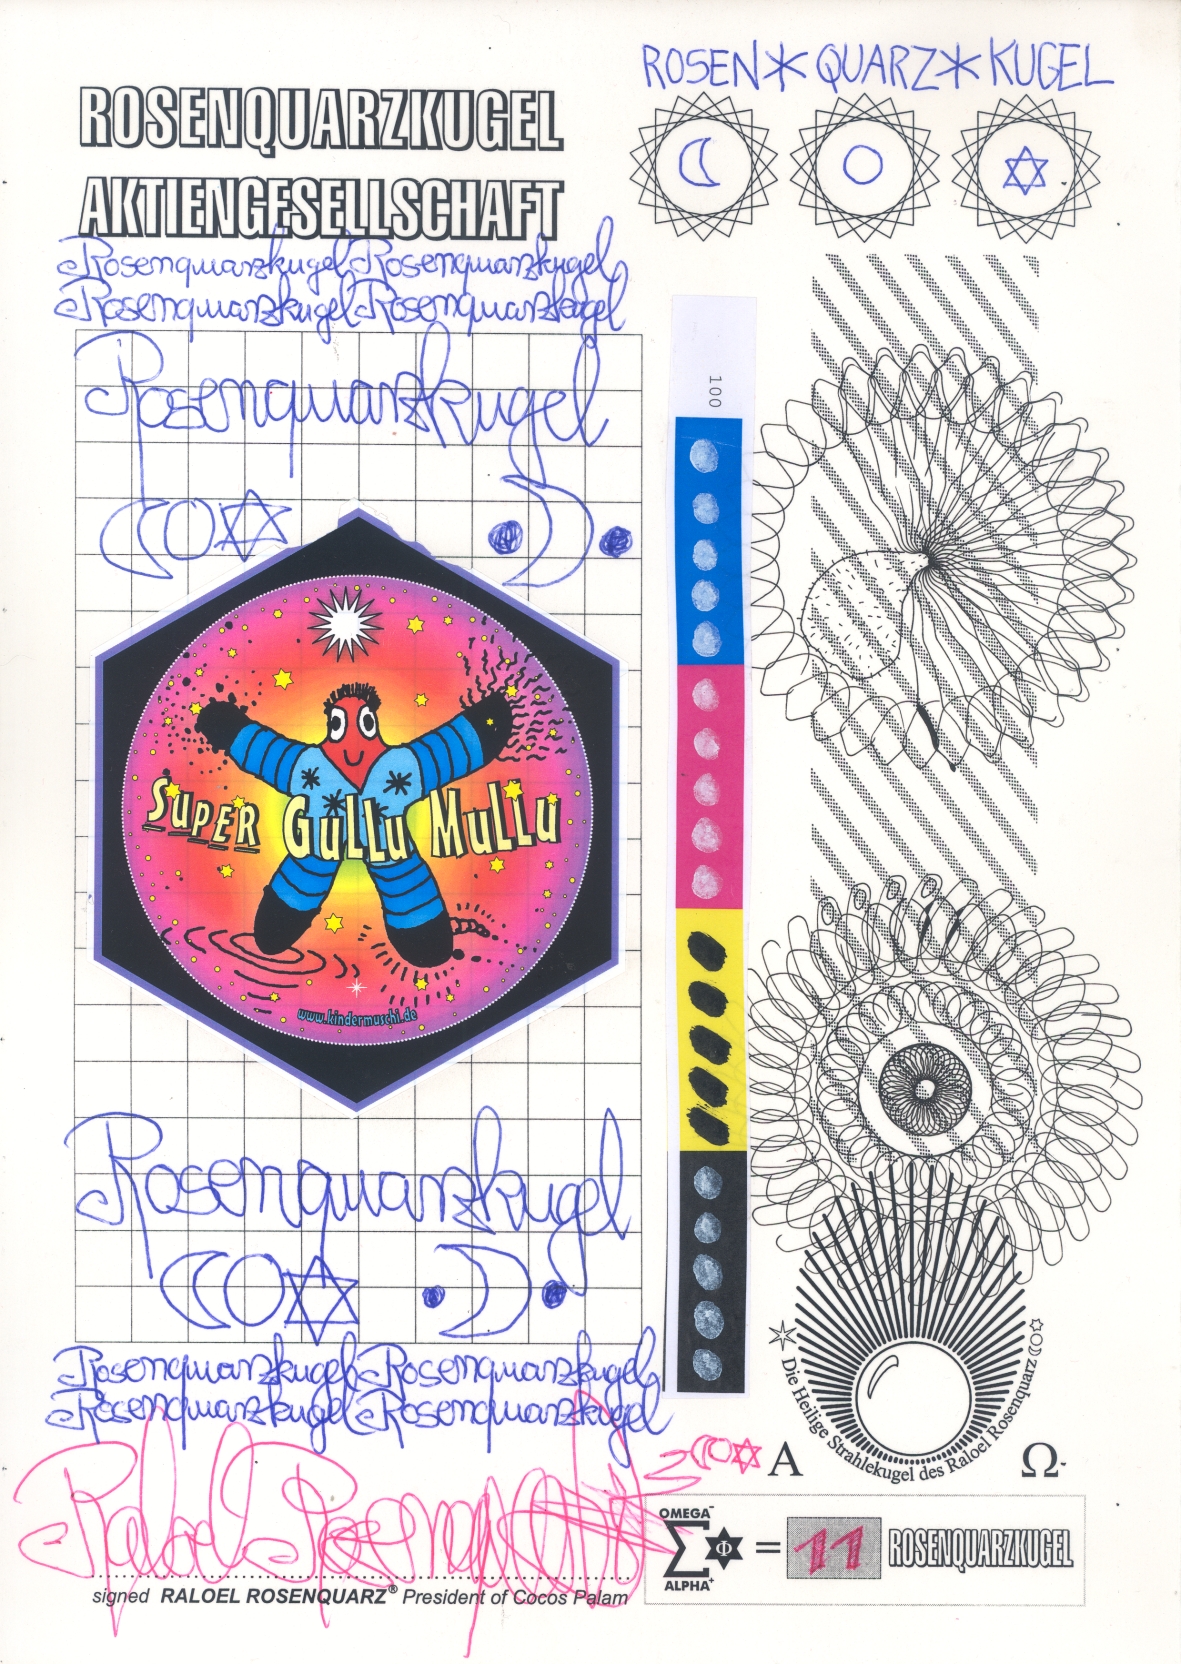 ROSEN✳QUARZ✳KUGEL
ROSENQUARZKUGEL
AKTIENGESELLSCHAFT
Rosenquarzkugel Rosenquarzkugel
Rosenquarzkugel Rosenquarzkugel
Rosenquarzkugel
100
SUPER GULLU MULLU
www.kindermuschi.de
Rosenquarzkugel
Rosenquarzkugel Rosenquarzkugel
Rosenquarzkugel Rosenquarzkugel
Die Heilige Strahlekugel des Raloel Rosenquarz
Α Ω
Raloel Rosenquarz
signed RALOEL ROSENQUARZ® President of Cocos Palam
OMEGA⁻
Σ Φ = 11 ROSENQUARZKUGEL
ALPHA⁺